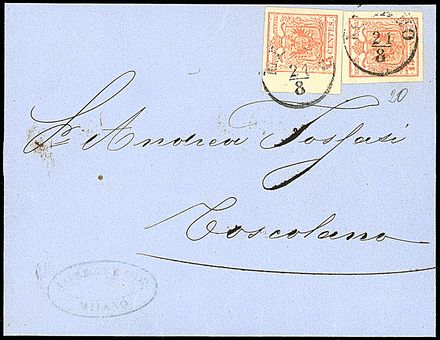 CENTES.
21
8
21
8
20
Sr. Andrea Fossati
Toscolano
MILANO